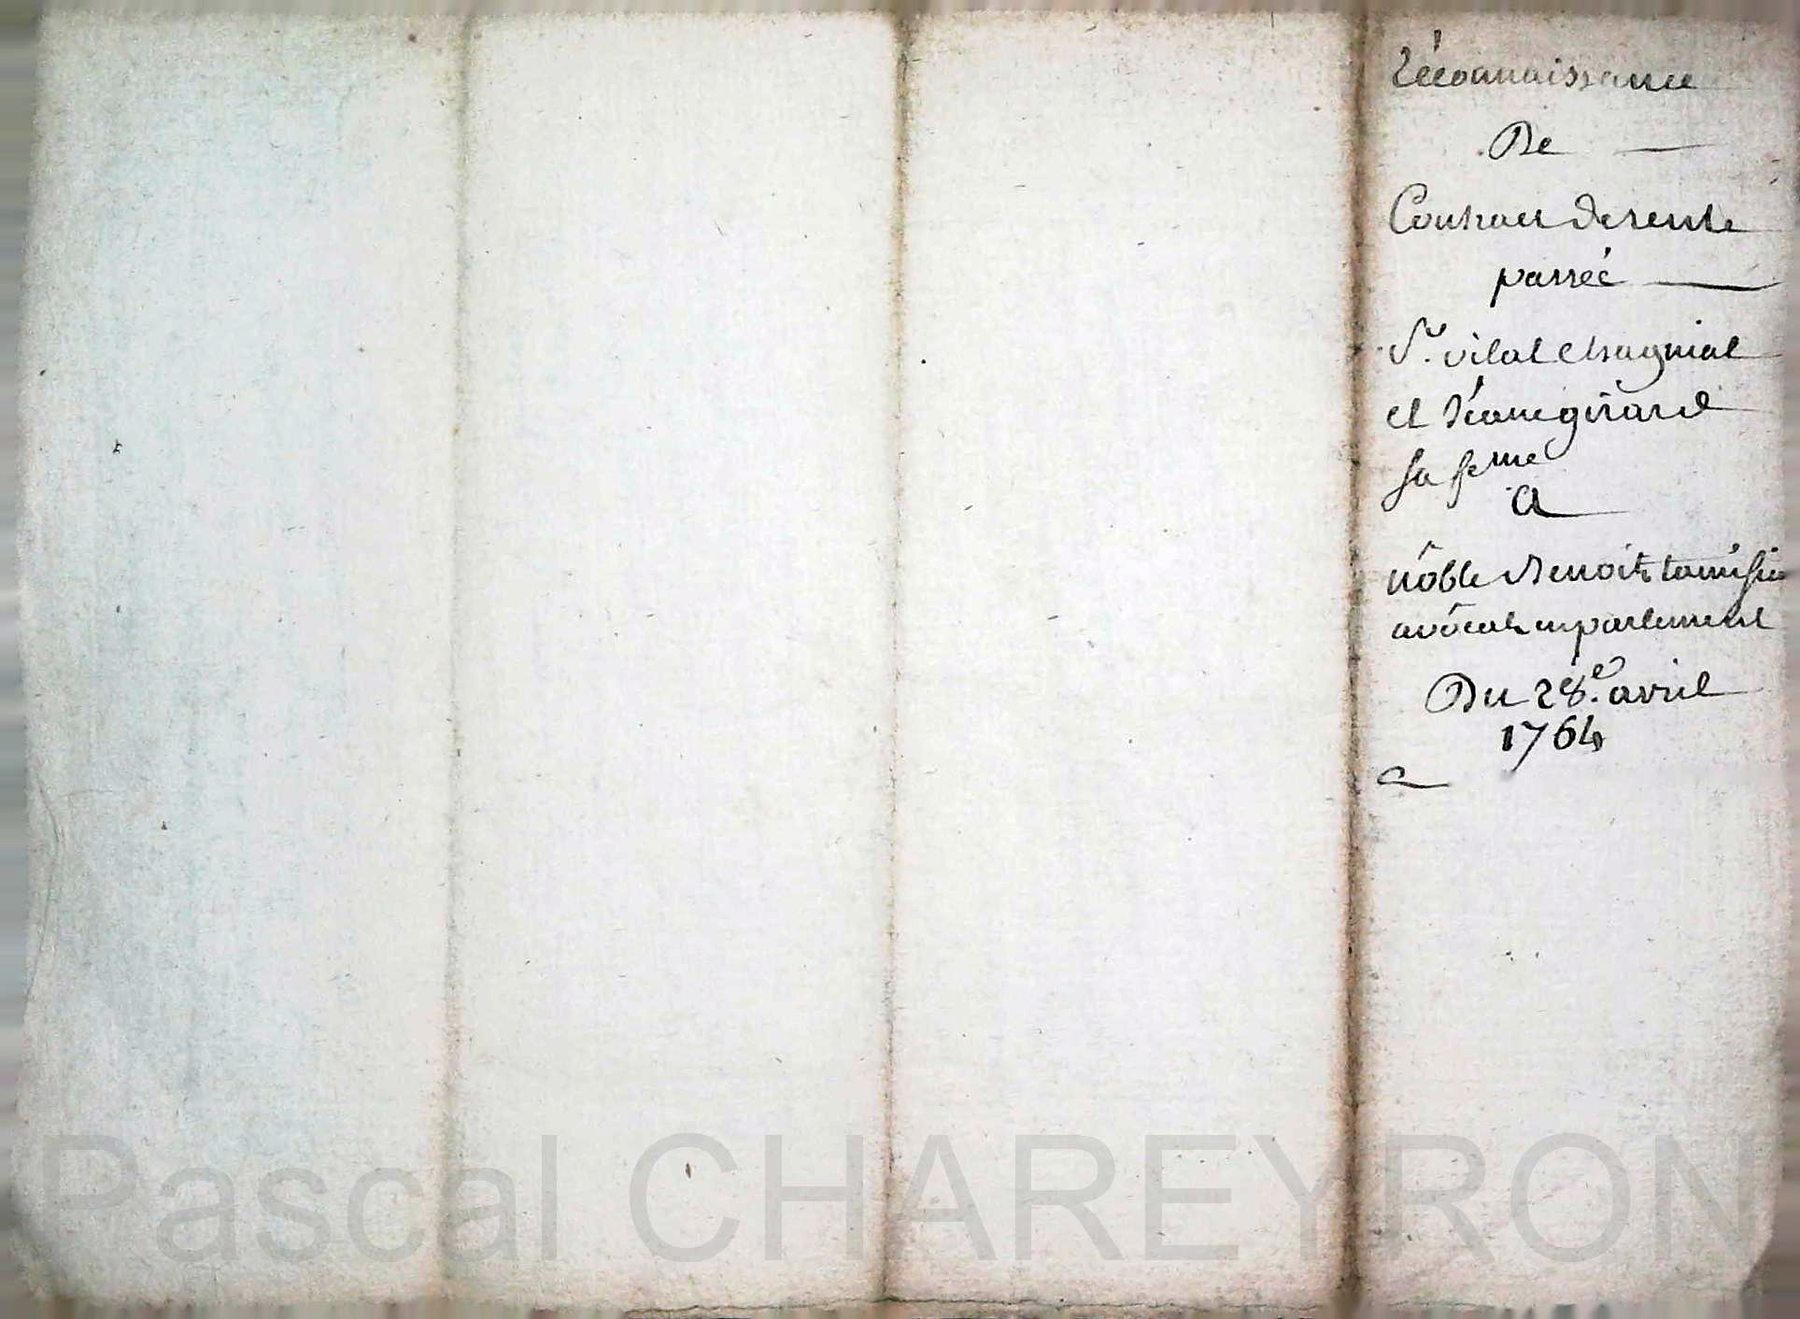 réconaissance
De
Contract de rente
passéé
Sr. vital chagniat
et Jeane girard
sa feme
A
nôble Benoit tamisie
avôcat en parlement
Du 28e. avril
1764
Pascal CHAREYRON